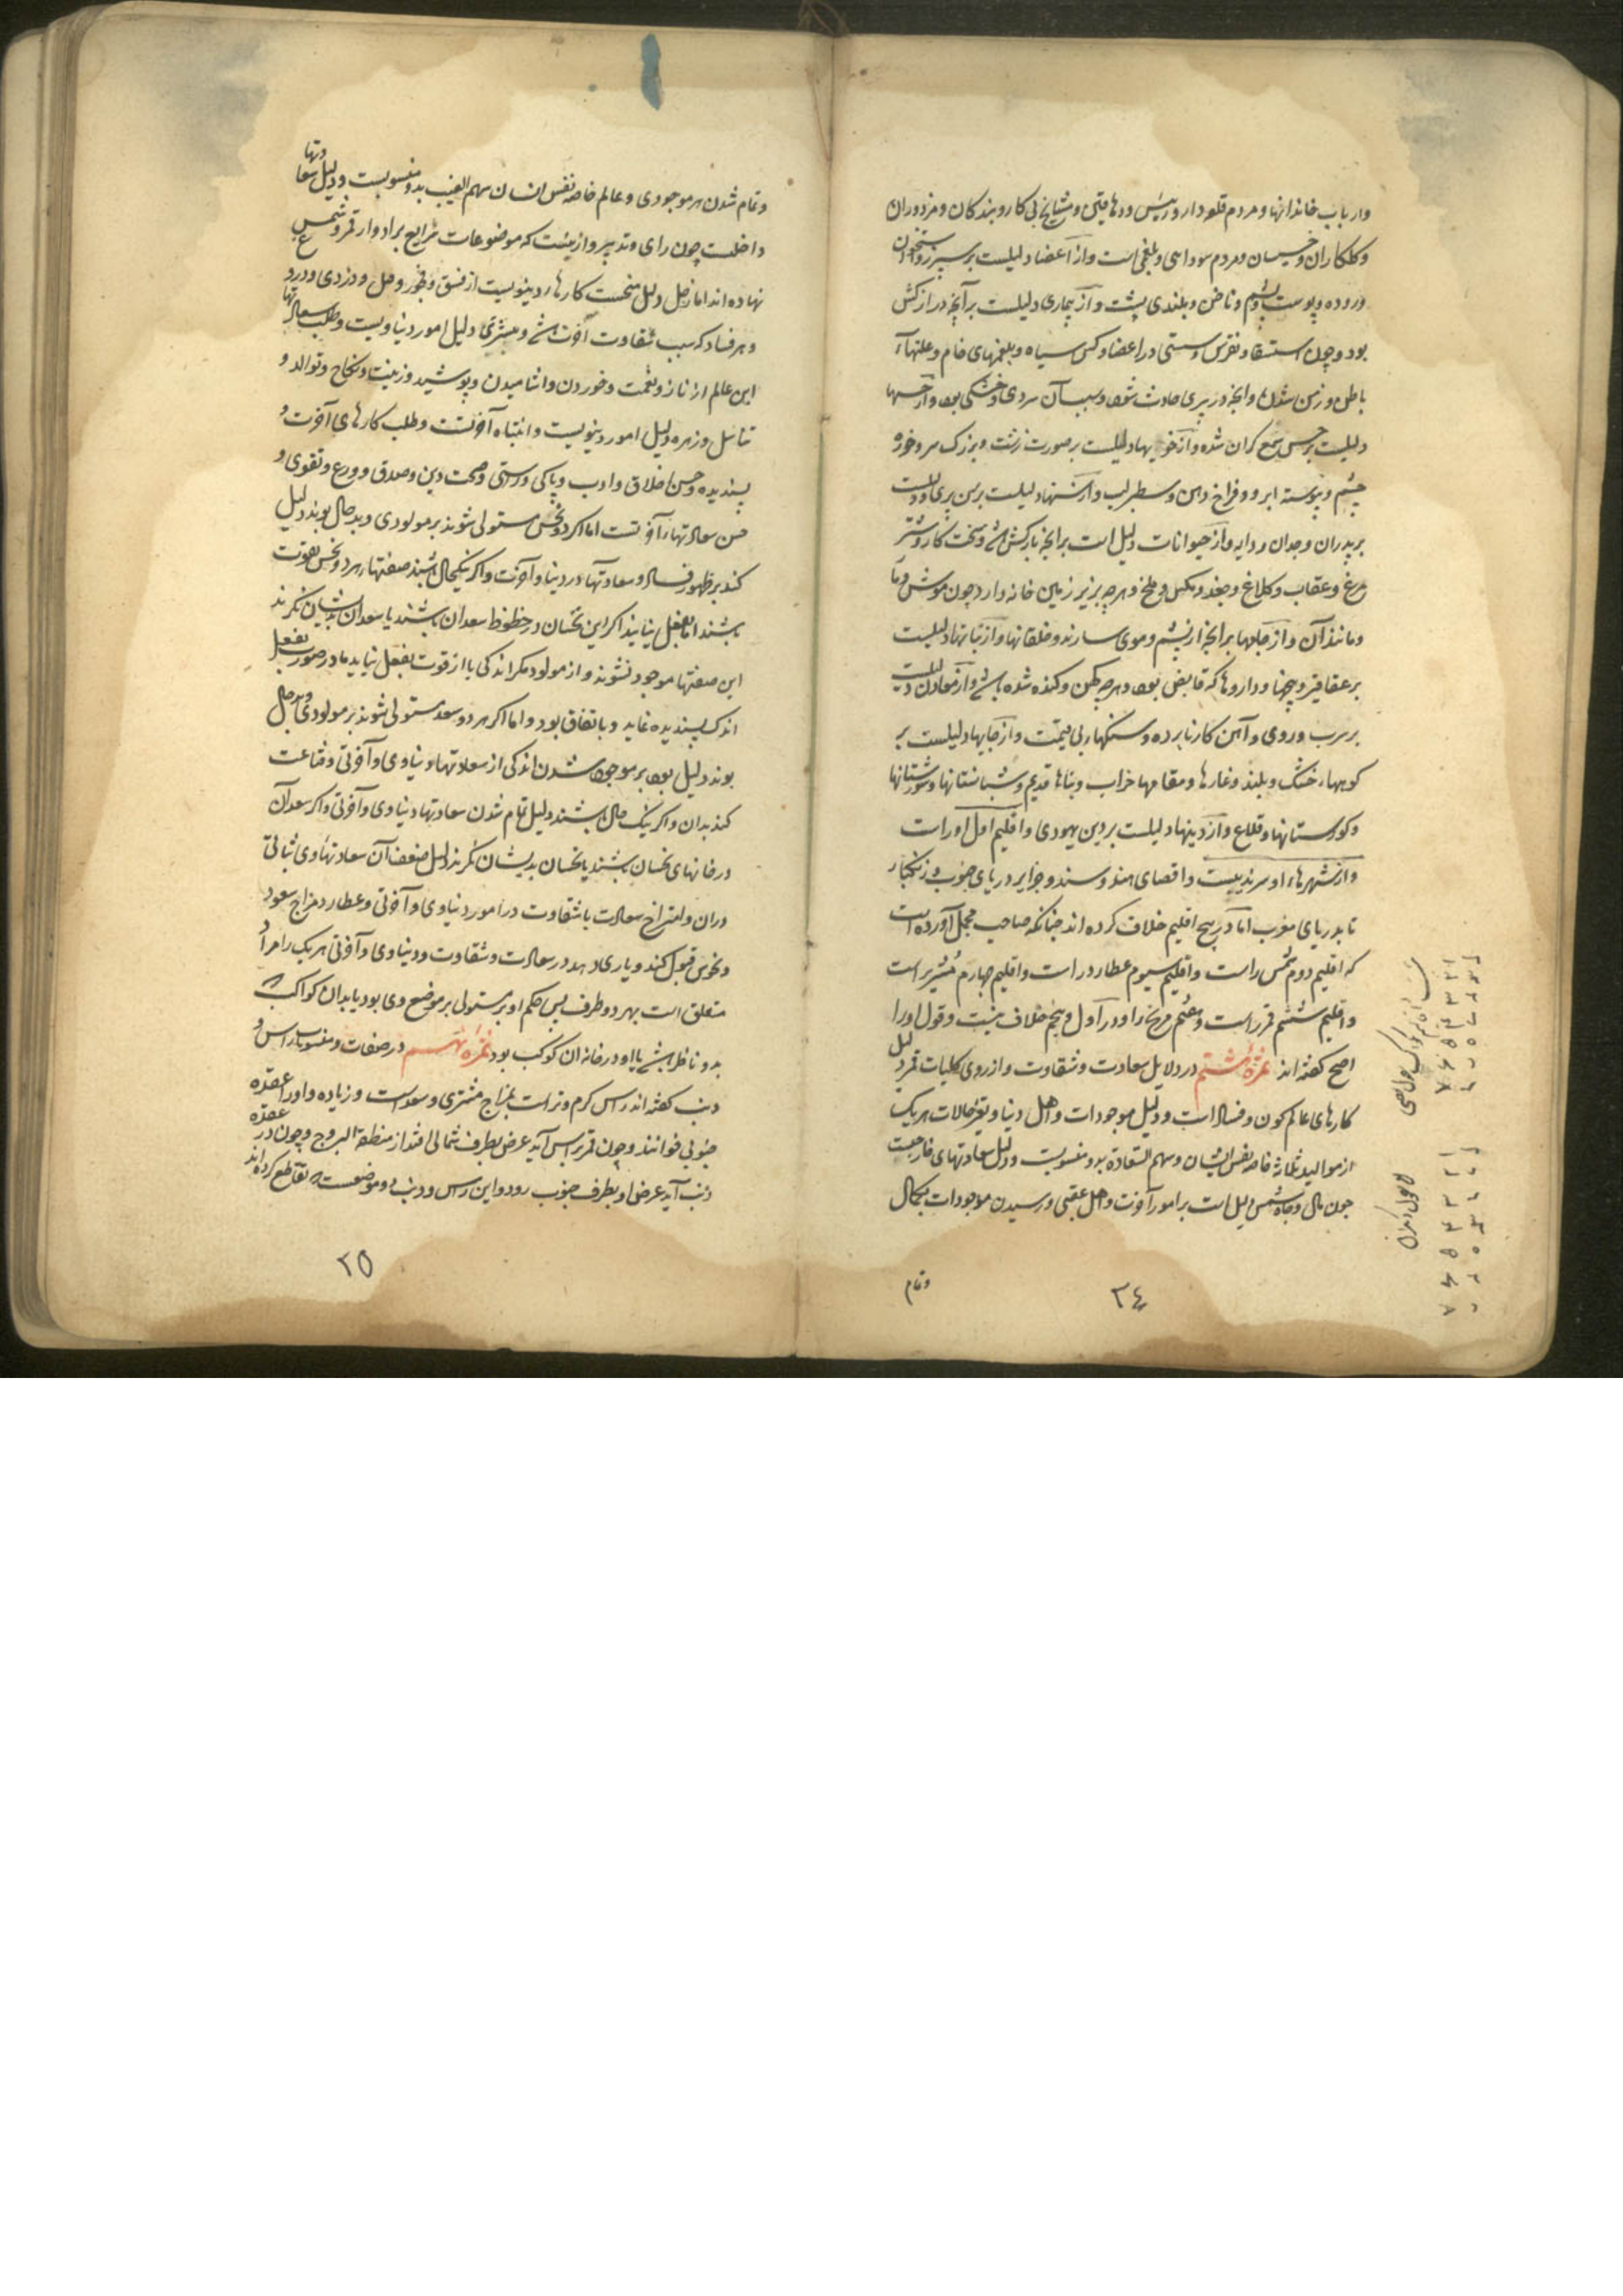 وارباب خاندانها ومردم قلعه دار ورئیس ودهاقین ومشایخ بی کار وبندکان ومزدوران
وکلکاران وخسیسان ومردم سوداسی وبلغمی است واز اعضا دلیلست برسپرز واستخوان
وروده وپوست وپشم وناخن وبلندی پشت واز بیماری دلیلست برآنچه دراز کش
بود وچون استسقا ونقرس وسستی در اعضا وکس سیاه وبلغمهای خام وعلتهاء
باطن وزمن شدن وانچه در پیری حادث شود وسبب آن سردی وخشکی بود واز حسها
دلیلیت برحس سمع کران شده واز خویها دلیلیت برصورت زشت وبزرک سر وخرد
چشم وپیوسته ابرو وفراخ دهن وسطبر لب واز سنها دلیلیت برسن پیری ودلیلست
برپدران وجدان ودایه واز حیوانات دلیل است برانچه بارکش باشد وسخت کار وشتر
مرغ وعقاب وکلاغ وجغد ومکس وملخ وهرچه بزیر زمین خانه دارد چون موش ومار
ومانند آن واز جامها برانچه از پشم وموی سازند وخلقانها واز نباتها دلیلیست
برعقاقیر وبیخها وداروها که قابض بود وهرچه کهن وکنده شده باشد واز معادن دلیلست
برسرب وروی وآهن کارنابرده وسنکهاء بی قیمت واز جایها دلیلست بر
کوههاء خشک وبلند وغارها ومقامها خراب وبناها قدیم وشباستانها وشورستانها
وکورستانها وقلاع واز دینها دلیلست بردین یهودی واقلیم اول اوراست
واز شهرهاء او سرندیبست واقصای هند وسند وجزایر دریای جنوب وزنکبار
تا بدریای مغرب اما در پنج اقلیم خلاف کرده اند چنانکه صاحب مجمل آورده است
که اقلیم دوم شمس راست واقلیم سیوم عطارد راست واقلیم چهارم مشتری راست
واقلیم ششم قمر راست وهفتم مریخ را ودر اول وپنجم خلاف نیست وقول اورا
اصح کفته اند ثمرۀ هشتم در دلایل سعادت وشقاوت واز روی کلیات قمر دلیل
کارهای عالم کون وفساد است ودلیل موجودات واهل دنیا وتغیر حالات هریک
از موالید ثلاثه خاصه نفس انسان وسهم السعادة بدو منسوبست ودلیل سعادتهای خارجیست
چون مال وجاه شمس دلیل است برامور آخرت واهل عقبی ورسیدن موجودات بکمال
وتمام
۳٤
وتمام شدن هر موجودی وعالم خاصه نفس انسان سهم الغیب بدو منسوبست ودلیل سعادتها
داخلست چون رای وتدبیر وازینست که موضوعات شرایع برادوار قمر وشمس
نهاده اند اما زحل دلیل منحست کارهاء دینویست از فسق وفجور وقتل ودزدی ودرد
وهر فساد که سبب شقاوت آخرت باشد ومشتری دلیل امور دنیاویست وطلب سعادتها
این عالم از ناز ونعمت وخوردن واشامیدن وپوشید وزینت ونکاح وتوالد و
تناسل وزهره دلیل امور دینویست وانتباه آخرتست وطلب کارهای آخرت
پسندیده وحسن اخلاق وادب وپاکی وراستی وصحت دین وصدق وورع وتقوی و
حسن سعادتهاء آخرتست اما اکر دو نحس مستولی شوند برمولودی وبد حال بوند دلیل
کند برظهور فساد وسعادتها در دنیا وآخرت واکر نیکحال باشند صفتهاء هر دو نحس بقوت
باشند اما بفعل نیایند اکر این نحسان در حظوظ سعدان باشند یا سعدان بدیشان نکرند
این صفتها موجود نشوند واز مولود مکر اندکی یا از قوت بفعل نیاید یا در صورت بفعل
اندک پسندیده نماید وباتفاق بود واما اکر هر دو سعد مستولی شوند برمولودی وبدحال
بوند دلیل بود برموجود شدن اندکی از سعادتهاء دنیاوی وآخرتی وقناعت
کند بدان واکر نیک حال باشند دلیل تمام شدن سعادتهاء دنیاوی وآخرتی واکر سعدان
در خانهای نحسان باشند یا نحسان بدیشان نکرند دلیل ضعف آن سعادتها وبی ثباتی
دران وامتزاج سعادت باشقاوت در امور دنیاوی وآخرتی وعطارد مزاج سعود
ونحوس قبول کند ویاری دهد در سعادت وشقاوت ودنیاوی وآخرتی هریک را مراد
متعلق است بهر دو طرف پس حکم او بر مستولی برموضع وی بود یا بدان کواکب
بدو ناظر باشد یا او در خانه ان کوکب بود ثمرۀ نهم در صفات ومنسوبات راس و
ذنب کفته اند راس کرم وتر است بمزاج مشتری وسعد است وزیاده واورا عقدۀ
جنوبی خوانند وچون قمر براس آید عرض بطرف شمالی افتد از منطقة البروج وچون در عقدۀ
ذنب آید عرض او بطرف جنوب رود واین راس وذنب دو موضعست تقاطع کرده اند
۲۵